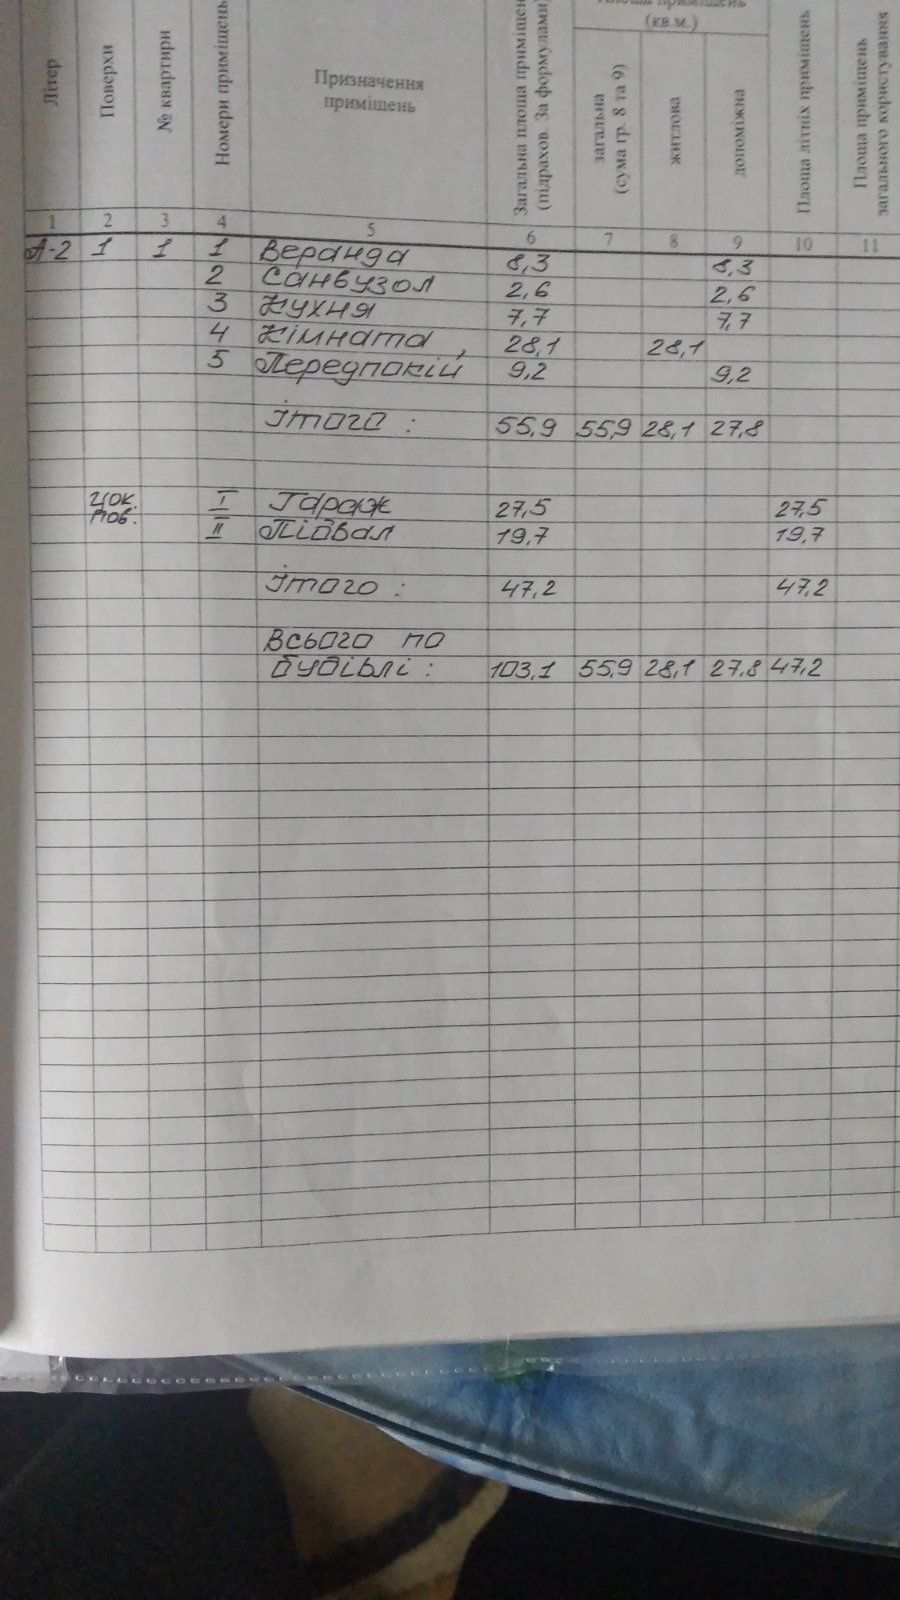 Літер
Поверхи
№ квартири
Номери приміщень
Призначення
приміщень
Загальна площа приміщень
(підрахов. За формулами)
(кв.м.)
загальна
(сума гр. 8 та 9)
житлова
допоміжна
Площа літніх приміщень
Площа приміщень
загального користування
1 2 3 4 5 6 7 8 9 10 11
А-2 1 1 1 Веранда 8,3 8,3
2 Санвузол 2,6 2,6
3 Кухня 7,7 7,7
4 Кімната 28,1 28,1
5 Передпокій 9,2 9,2
Ітого : 55,9 55,9 28,1 27,8
цок.
пов.
I Гараж 27,5 27,5
II Підвал 19,7 19,7
Ітого : 47,2 47,2
Всього по
будівлі : 103,1 55,9 28,1 27,8 47,2